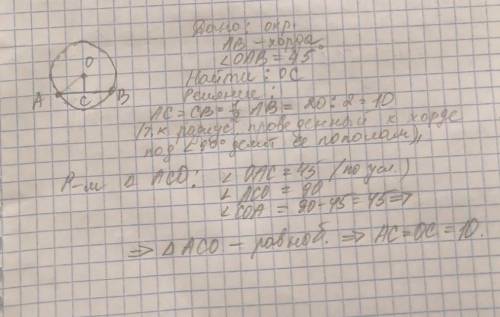 Дано: окр.
AB – хорда.
∠OAB = 45°
Найти: OC
Решение:
AC = CB = 1/2 AB = 20 : 2 = 10
(т.к радиус, проведенный к хорде
под ∠90° делит её пополам),
Р-м △ ACO: ∠OAC = 45 (по усл.)
∠ACO = 90
∠COA = 90 - 45 = 45 ⇒
⇒ △ACO – равноб. ⇒ AC = OC = 10.
O
A C B